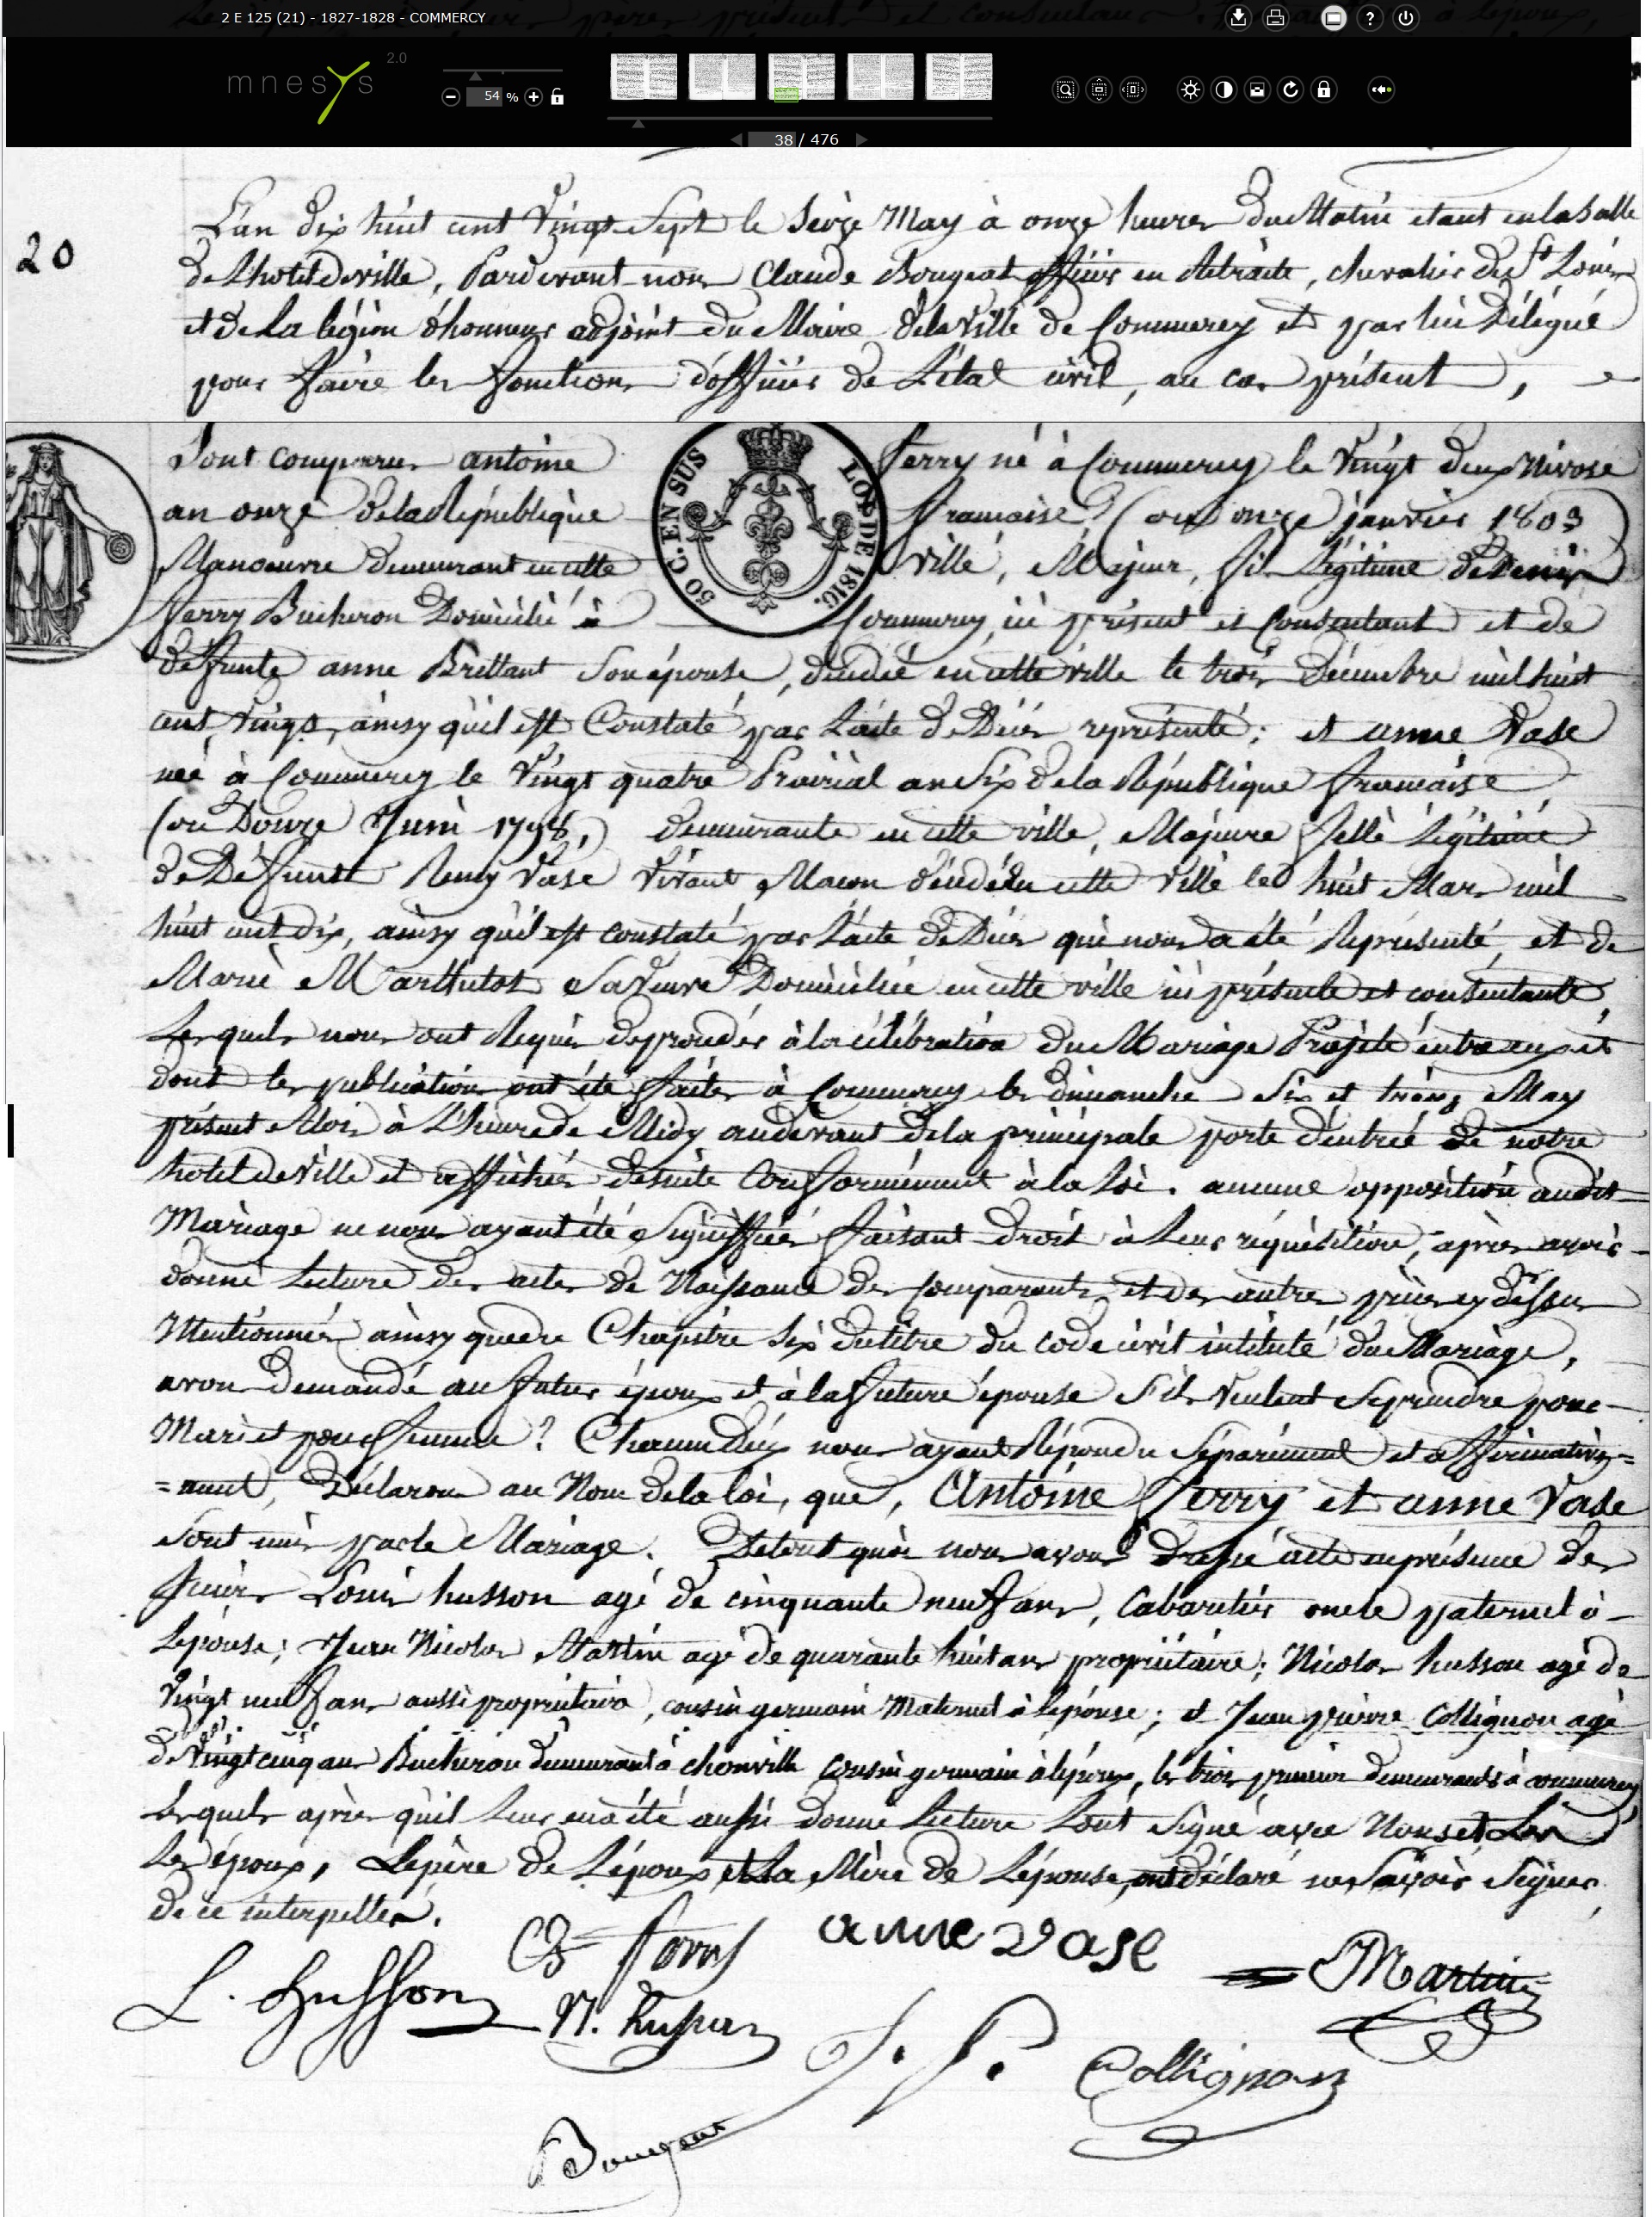 2 E 125 (21) - 1827-1828 - COMMERCY
mnesys 2.0
54 %
38 / 476
20
L'an dix huit cent Vingt Sept le Seize May à onze heures du Matin etant en la Salle
de L'hotel de ville, Pardevant nous Claude Bougeat officier en Retraite, chevalier de St Louis
et de La légion d'honneur adjoint du Maire de la Ville de Commercy et par lui Délégué
pour faire les fonctions d'officier de L'état civil, au cas présent,
50 C. EN SUS
LOI DE 1816.
Sont comparus antoine ferry né à Commercy le Vingt deux Nivose
an onze de la République francaise (ou onze janvier 1803
Manoeuvre demeurant en cette Ville, Majeur, fils Légitime de Denis
ferry Bucheron Domicilié à Commercy, ici présent et Consentant et de
défunte anne Brillant Son épouse, décédée en cette ville le trois Décembre mil huit
cent Vingt, ainsy qu'il est Constaté par L'acte de Décès représenté; et anne Vase
née à Commercy le Vingt quatre Prairial an Six de la République francaise
(ou Douze Juin 1798,) demeurante en cette ville, Majeure fille Légitime
de Défunt Remy Vase Vivant Macon décédé en cette Ville le huit Mars mil
huit cent dix, ainsy qu'il est constaté par L'acte de Décès qui nous a été Représenté, et de
Marie Marthutot Sa Veuve Domiciliée en cette ville ici présente et consentante,
Lesquels nous ont Requis de procéder à la célébration du Mariage Projeté entre eux et
dont les publications ont été faites à Commercy les dimanche Six et treize May
présent Mois à L'heure de Midy au devant de la principale porte d'entrée de notre
hotel de Ville et affichées de suite Conformément à la Loi. aucune opposition audit
Mariage ne nous ayant été Signiffiée faisant droit à Leur réquisition, après avoir
donné Lecture des actes de Naissance des Comparants et des autres pièces cy dessus
Mentionnées ainsy que du Chapitre Six du titre du code civil intitulé du Mariage,
avons Demandé au futur époux et à la future épouse S'ils Veulent Se prendre pour
Mari et pour femme? Chacun d'eux nous ayant Répondu Séparément et affirmative=
=ment, Déclarons au Nom de la loi, que, Antoine ferry et anne Vase
Sont unis par le Mariage. De tout quoi nous avons dressé acte en présence des
Sieurs Louis husson agé de cinquante neuf ans, Cabaretier oncle paternel à
L'épouse; Jean Nicolas Martin agé de quarante huit ans propriétaire; Nicolas husson agé de
Vingt neuf ans aussi propriétaire, cousin germain Maternel à L'épouse; et Jean pierre Collignon agé
de Vingt cinq ans Bucheron demeurant à chonville Cousin germain à l'époux, les trois premiers demeurants à commercy
Lesquels après qu'il Leur en a été aussi donné Lecture L'ont Signé avec Nous et Les
Les époux, Le père de L'époux et La Mère de L'épouse, ont déclaré ne Savoir Signer
de ce interpellés.
anne vase
Martin
L. husson
N. husson
J. P. Collignon
Bougeat